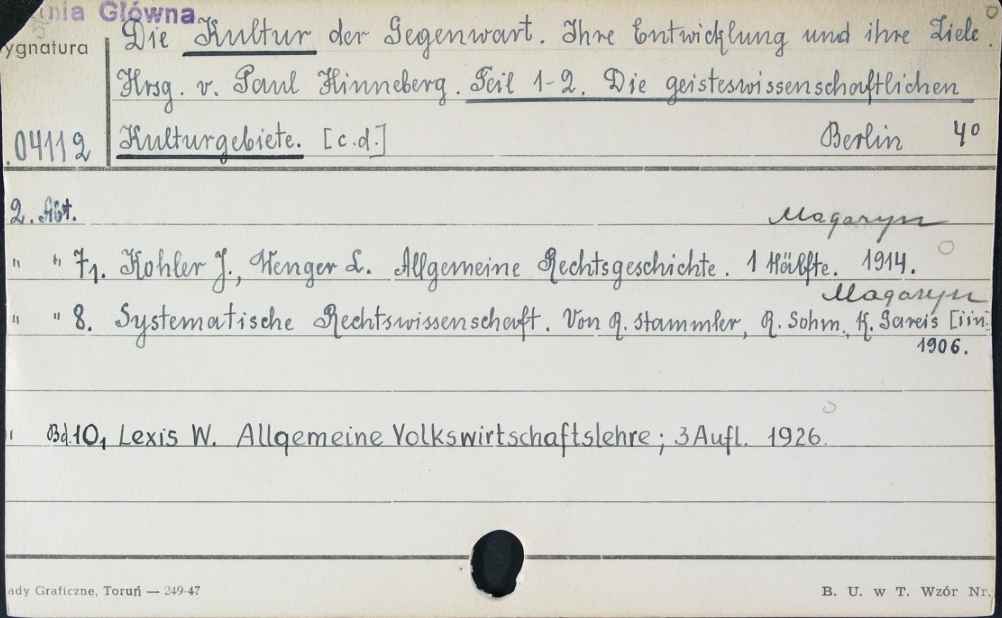 nia Główna
ygnatura
Die Kultur der Gegenwart. Ihre Entwicklung und ihre Ziele.
Hrsg. v. Paul Hinneberg. Teil 1-2. Die geisteswissenschaftlichen
.04112 Kulturgebiete. [c.d.] Berlin 4°
2. Abt. Magazyn
" " 7₁. Kohler J., Wenger L. Allgemeine Rechtsgeschichte. 1 Hälfte. 1914.
Magazyn
" " 8. Systematische Rechtswissenschaft. Von R. Stammler, R. Sohm, K. Gareis [i in.
1906.
" Bd. 10₁ Lexis W. Allgemeine Volkswirtschaftslehre; 3 Aufl. 1926.
ady Graficzne, Toruń — 249-47 B. U. w T. Wzór Nr.